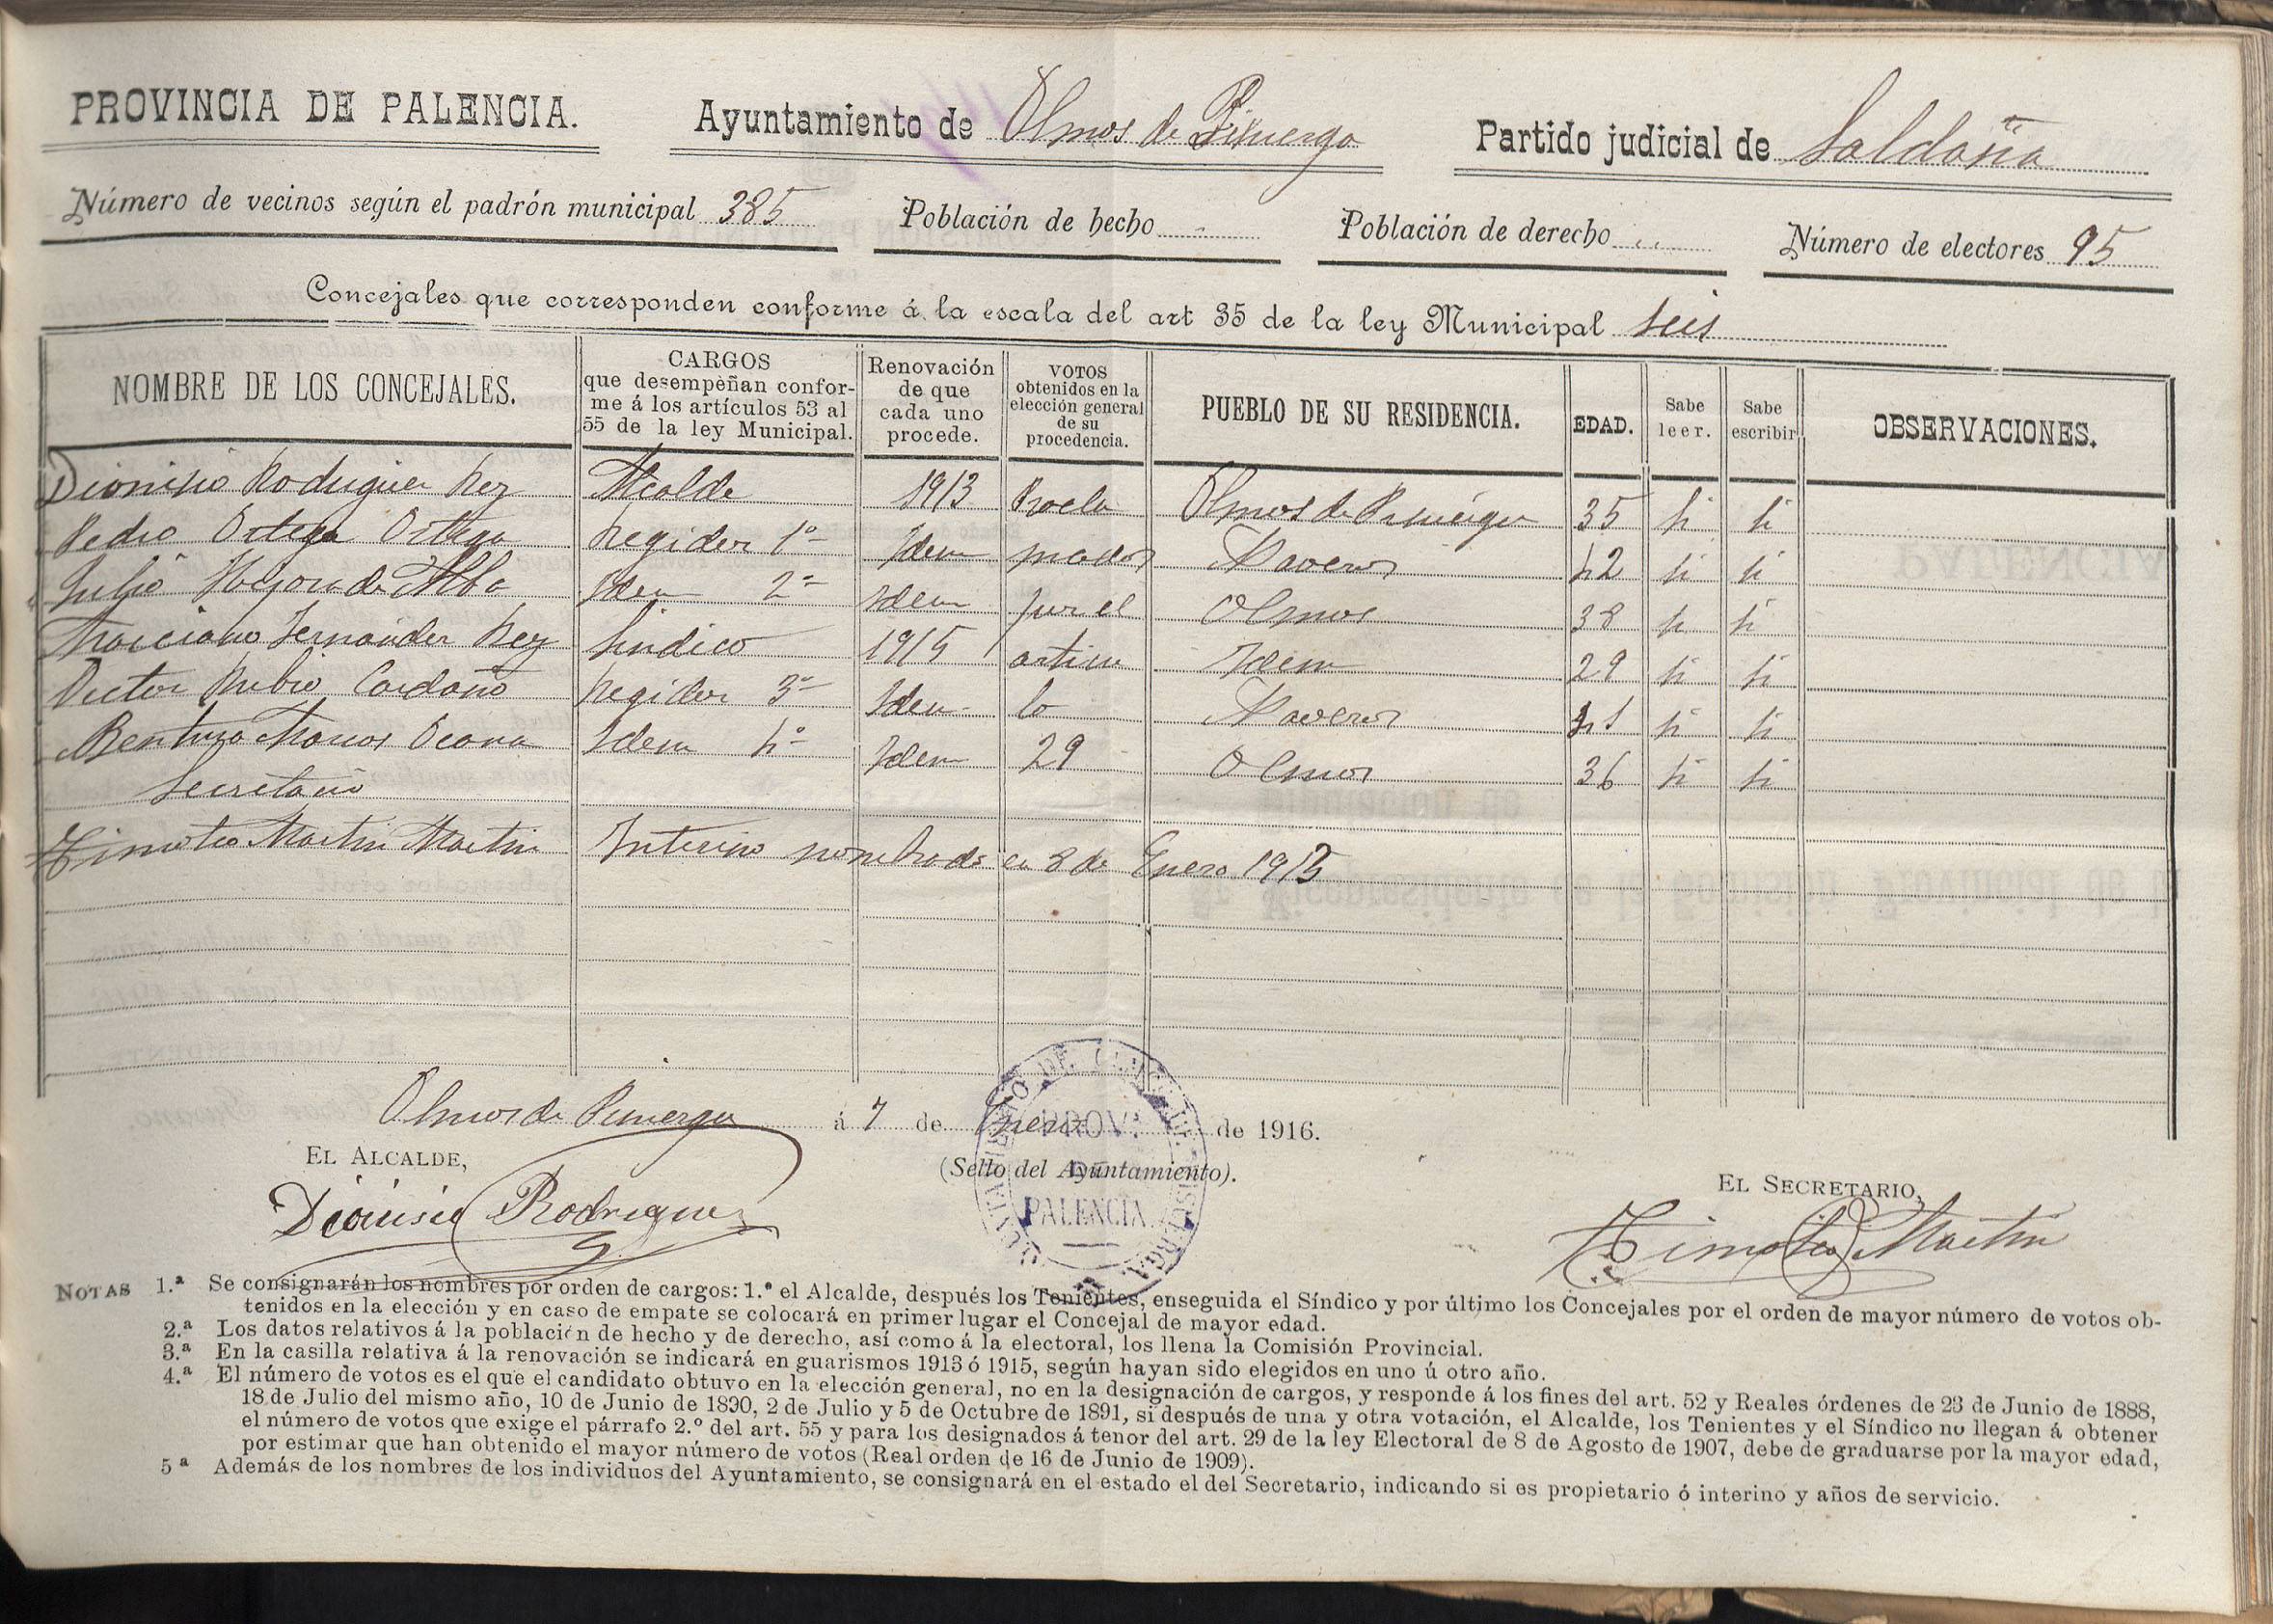 PROVINCIA DE PALENCIA. Ayuntamiento de Olmos de Pisuerga Partido judicial de Saldaña
Número de vecinos según el padrón municipal 385 Población de hecho Población de derecho Número de electores 95
Concejales que corresponden conforme á la escala del art 35 de la ley Municipal seis
NOMBRE DE LOS CONCEJALES. CARGOS que desempeñan conforme á los artículos 53 al 55 de la ley Municipal. Renovación de que cada uno procede. VOTOS obtenidos en la elección general de su procedencia. PUEBLO DE SU RESIDENCIA. EDAD. Sabe leer. Sabe escribir OBSERVACIONES.
Dionisio Rodriguez Rey Alcalde 1913 Procla Olmos de Pisuerga 35 si si
Pedro Ortega Ortega Regidor 1º Idem mados Naveros 42 si si
Julio Hoyos de Alba Idem 2º Idem por el Olmos 38 si si
Marciano Fernandez Rey Sindico 1915 articu Idem 29 si si
Victor Rubio Cardaño Regidor 3º Idem lo Naveros 41 si si
Bentura Idem 4º Idem 29 Olmos 36 si si
Secretario
Timoteo Martin Martin Interino nombrado en 8 de Enero 1915
Olmos de Pisuerga á 7 de Enero de 1916.
EL ALCALDE, (Sello del Ayuntamiento). EL SECRETARIO,
Dionisio Rodriguez Timoteo Martin
PROV.ª DE PALENCIA
NOTAS 1.ª Se consignarán los nombres por orden de cargos: 1.º el Alcalde, después los Tenientes, enseguida el Síndico y por último los Concejales por el orden de mayor número de votos ob-
tenidos en la elección y en caso de empate se colocará en primer lugar el Concejal de mayor edad.
2.ª Los datos relativos á la población de hecho y de derecho, así como á la electoral, los llena la Comisión Provincial.
3.ª En la casilla relativa á la renovación se indicará en guarismos 1913 ó 1915, según hayan sido elegidos en uno ú otro año.
4.ª El número de votos es el que el candidato obtuvo en la elección general, no en la designación de cargos, y responde á los fines del art. 52 y Reales órdenes de 23 de Junio de 1888,
18 de Julio del mismo año, 10 de Junio de 1890, 2 de Julio y 5 de Octubre de 1891, si después de una y otra votación, el Alcalde, los Tenientes y el Síndico no llegan á obtener
el número de votos que exige el párrafo 2.º del art. 55 y para los designados á tenor del art. 29 de la ley Electoral de 8 de Agosto de 1907, debe de graduarse por la mayor edad,
por estimar que han obtenido el mayor número de votos (Real orden de 16 de Junio de 1909).
5ª Además de los nombres de los individuos del Ayuntamiento, se consignará en el estado el del Secretario, indicando si es propietario ó interino y años de servicio.